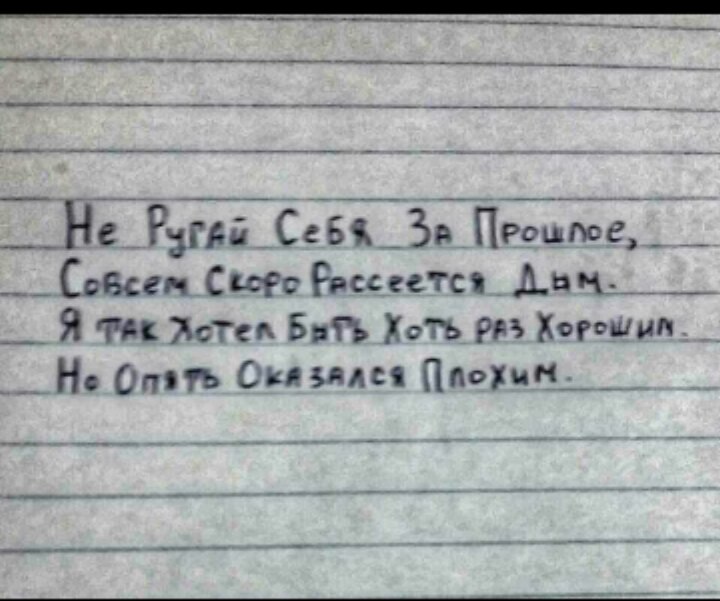 Не Ругай Себя За Прошлое,
Совсем Скоро Рассеется Дым.
Я так Хотел Быть Хоть раз Хорошим.
Но Опять Оказался Плохим.